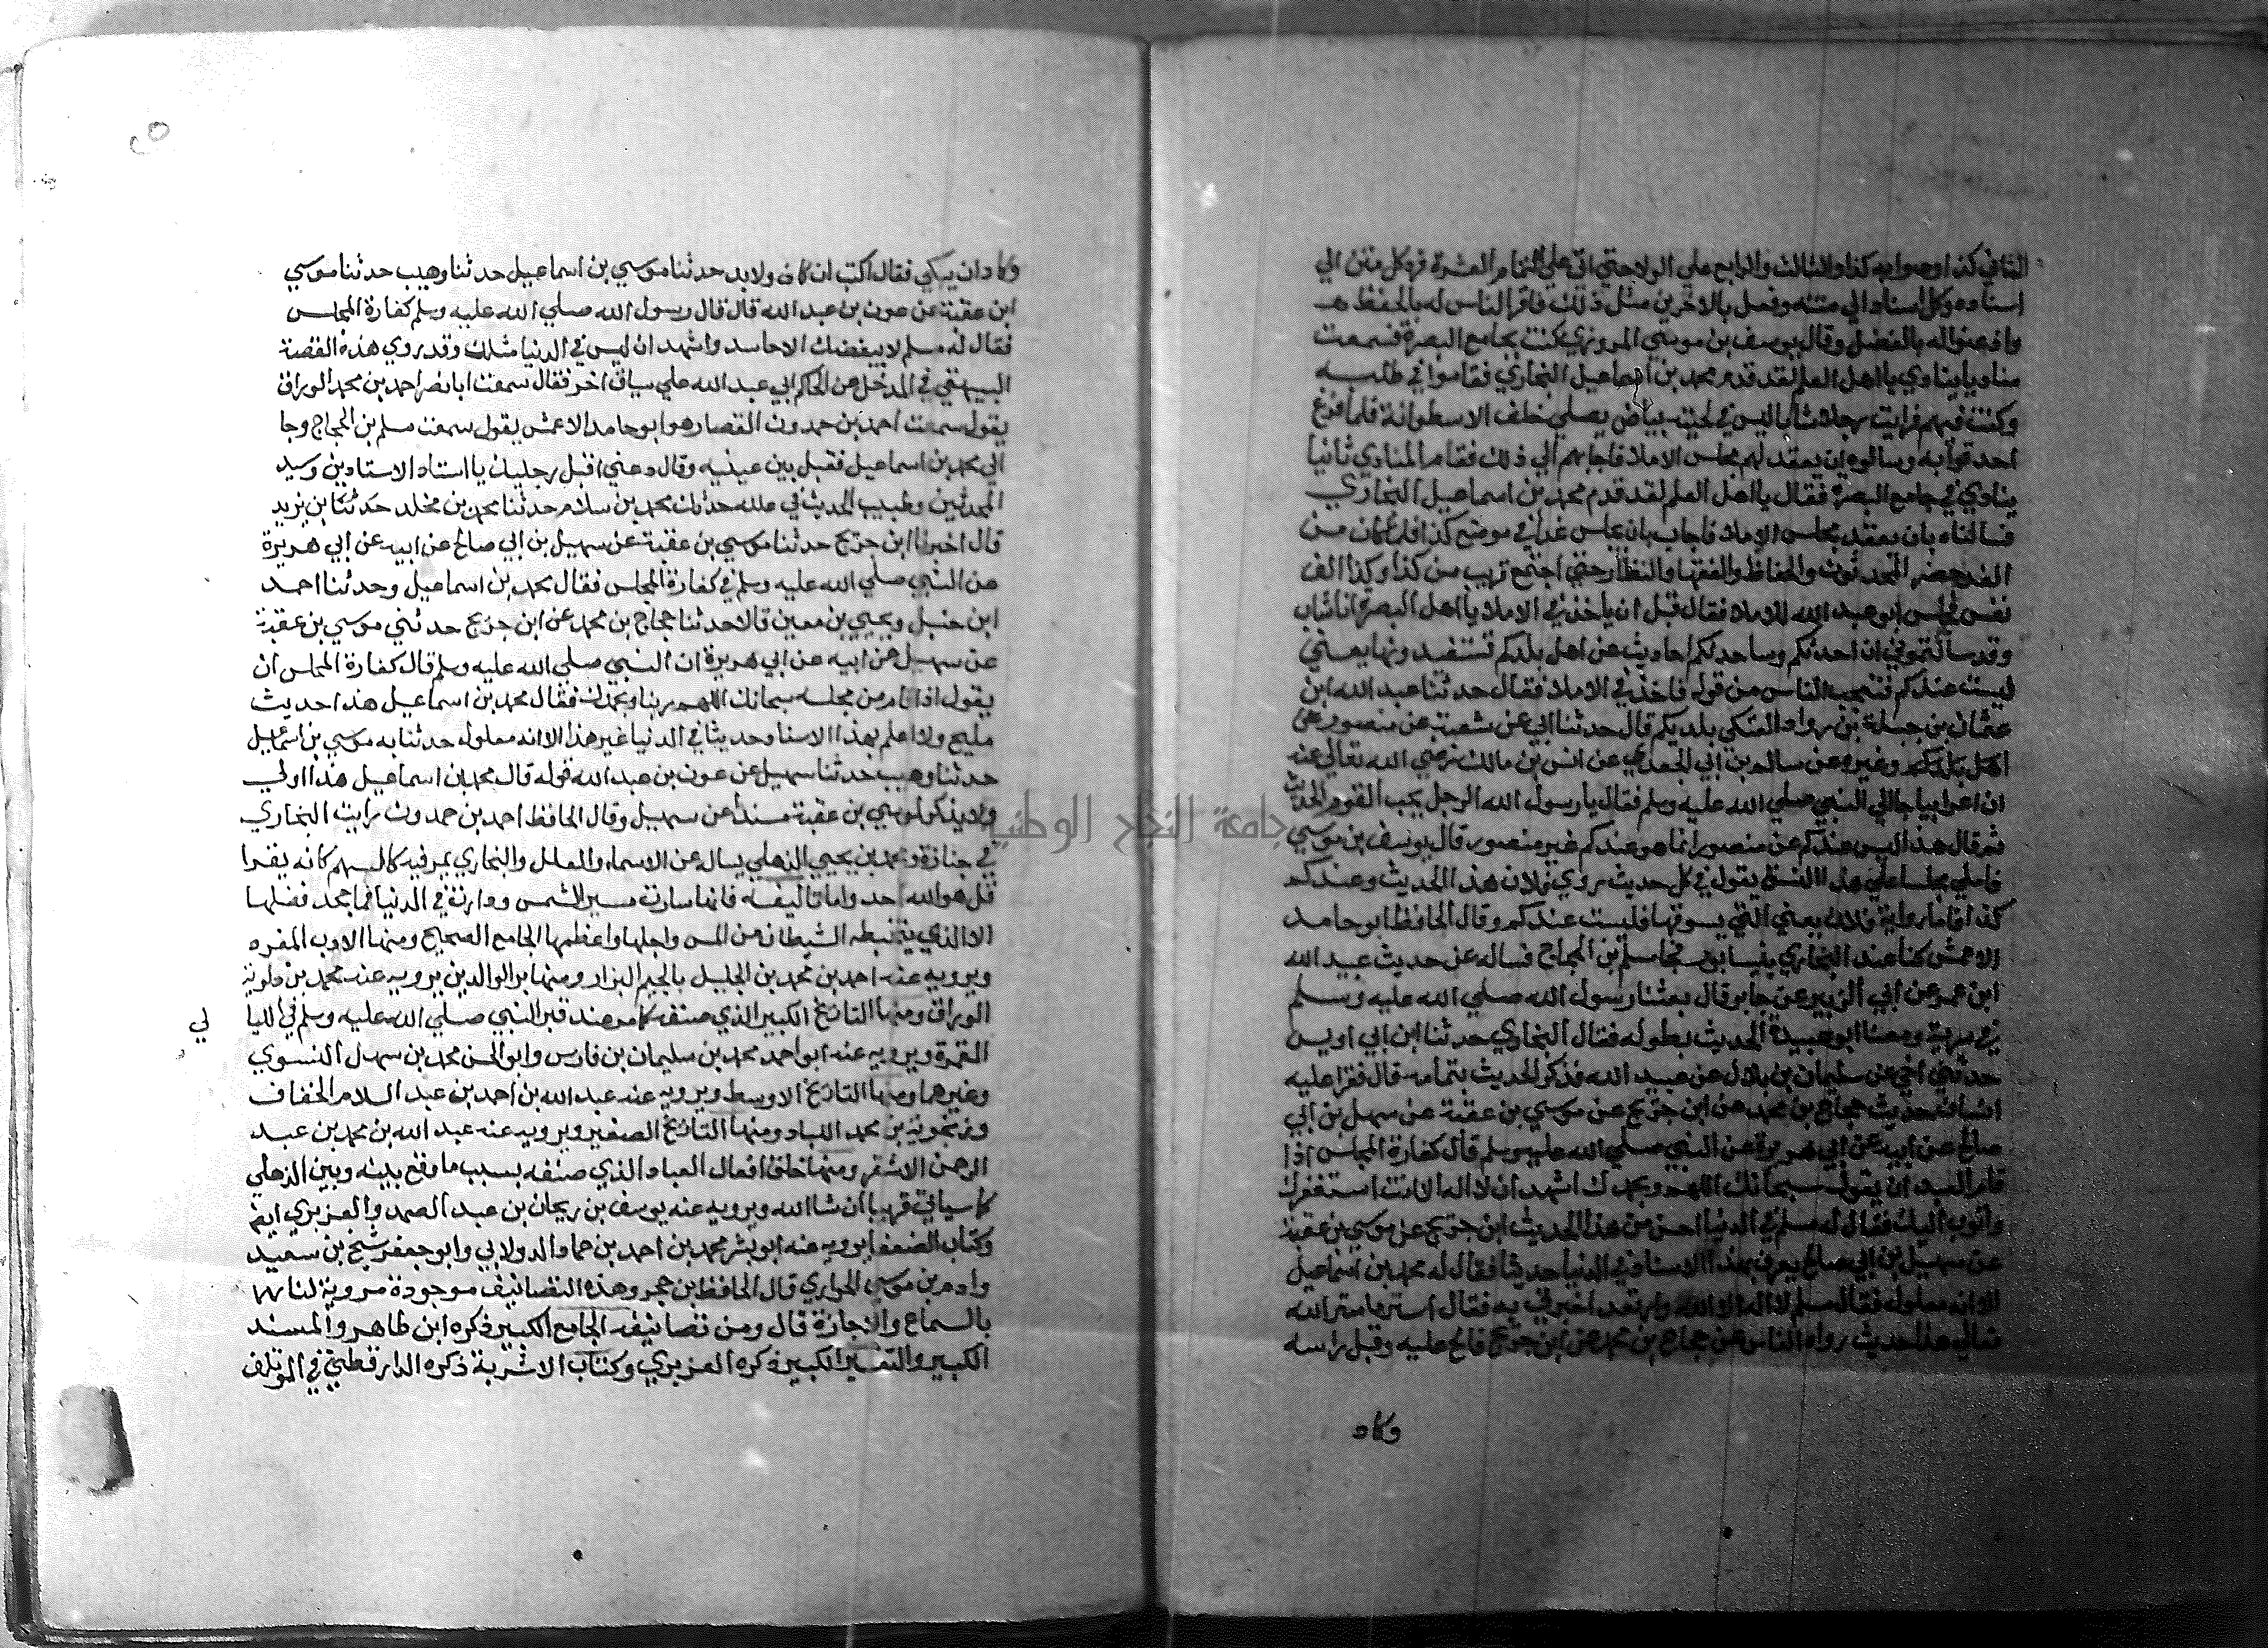 الثاني كذا وصوابه كذا والثالث والرابع علي الولا حتي اتي علي تمام العشرة فرد كل متن الي
اسناده وكل اسناد الي متنه وفعل بالاخرين مثل ذلك فاقر الناس له بالحفظ
واذعنوا له بالفضل وقال يوسف بن موسي المروزي كنت بجامع البصرة فسمعت
مناديا ينادي يا اهل العلم لقد قدم محمد بن اسماعيل البخاري فقاموا في طلبه
وكنت فيهم فرايت رجلا شابا ليس في لحيته بياض يصلي خلف الاسطوانة فلما فرغ
احدقوا به وسالوه ان يعقد لهم مجلس الاملا فاجابهم الي ذلك فقام المنادي ثانيا
ينادي في جامع البصرة فقال يا اهل العلم لقد قدم محمد بن اسماعيل البخاري
فسالناه بان يعقد مجلس الاملا فاجاب بان يجلس غدا في موضع كذا فلما كان من
الغد حضر المحدثون والحفاظ والفقها والنظار حتي اجتمع قريب من كذا وكذا الف
نفس فجلس ابو عبد الله للاملا فقال قبل ان ياخذ في الاملا يا اهل البصرة انا شاب
وقد سالتموني ان احدثكم وساحدثكم احاديث عن اهل بلدكم تستفيدونها يعني
ليست عندكم فتعجب الناس من قوله فاخذ في الاملا فقال حدثنا عبد الله ابن
عثمان بن جبلة بن رواد العتكي بلديكم قال حدثنا ابي عن شعبة عن منصور عن
وغيره عن سالم بن ابي الجعد عن انس بن مالك رضي الله تعالي عنه
ان اعرابيا جا الي النبي صلي الله عليه وسلم فقال يا رسول الله الرجل يحب القوم الحديث
ثم قال هذا ليس عندكم عن منصور انما هو عندكم غير منصور قال يوسف بن موسي
فاملي مجلسا علي هذا النسق يقول في كل حديث روي فلان هذا الحديث وعندكم
كذا فاما رواية فلان يعني التي يسوقها فليست عندكم وقال الحافظ ابو حامد
الاعمش كنا عند البخاري بنيسابور فجا مسلم بن الحجاج فساله عن حديث عبيد الله
ابن عمر عن ابي الزبير عن جابر قال بعثنا رسول الله صلي الله عليه وسلم
في سرية ومعنا ابو عبيدة الحديث بطوله فقال البخاري حدثنا ابن ابي اويس
حدثني اخي عن سليمان بن بلال عن عبيد الله فذكر الحديث بتمامه قال فقرا عليه
انسان حديث حجاج بن محمد عن ابن جريج عن موسي بن عقبة عن سهيل بن ابي
صالح عن ابيه عن ابي هريرة عن النبي صلي الله عليه وسلم قال كفارة المجلس اذا
قام العبد ان يقول سبحانك اللهم وبحمدك اشهد ان لا اله الا انت استغفرك
واتوب اليك فقال له مسلم في الدنيا احسن من هذا الحديث ابن جريج عن موسي بن عقبة
عن سهيل بن ابي صالح يعرف بهذا الاسناد في الدنيا حديثا فقال له محمد بن اسماعيل
الا انه معلول فقال مسلم لا اله الا الله وارتعد اخبرني به فقال استر ما ستر الله
تعالي هذا حديث رواه الناس عن حجاج بن محمد عن ابن جريج فالح عليه وقبل راسه
وكاد
وكاد ان يبكي فقال اكتب ان كان ولابد حدثنا موسي بن اسماعيل حدثنا وهيب حدثنا موسي
ابن عقبة عن عون بن عبد الله قال قال رسول الله صلي الله عليه وسلم كفارة المجلس
فقال له مسلم لا يبغضك الا حاسد واشهد ان ليس في الدنيا مثلك وقد روي هذه القصة
البيهقي في المدخل عن الحاكم ابي عبد الله علي سياق اخر فقال سمعت ابا نصر احمد بن محمد الوراق
يقول سمعت احمد بن حمدون القصار هو ابو حامد الاعمش يقول سمعت مسلم بن الحجاج وجا
الي محمد بن اسماعيل فقبل بين عينيه وقال دعني اقبل رجليك يا استاد الاستادين وسيد
المحدثين وطبيب الحديث في علله حدثك محمد بن سلام حدثنا محمد بن مخلد حدثنا بن يزيد
قال اخبرنا ابن جريج حدثنا موسي بن عقبة عن سهيل بن ابي صالح عن ابيه عن ابي هريرة
عن النبي صلي الله عليه وسلم في كفارة المجلس فقال محمد بن اسماعيل وحدثنا احمد
ابن حنبل ويحيي بن معين قالا حدثنا حجاج بن محمد عن ابن جريج حدثني موسي بن عقبة
عن سهيل عن ابيه عن ابي هريرة ان النبي صلي الله عليه وسلم قال كفارة المجلس ان
يقول اذا قام من مجلسه سبحانك اللهم ربنا وبحمدك فقال محمد بن اسماعيل هذا حديث
مليح ولا اعلم بهذا الاسناد حديثا في الدنيا غير هذا الا انه معلول حدثنا به موسي بن اسماعيل
حدثنا وهيب حدثنا سهيل عن عون بن عبد الله قوله قال محمد بن اسماعيل هذا اولي
ولا يذكر لموسي بن عقبة مسندا عن سهيل وقال الحافظ احمد بن حمدون رايت البخاري
في جنازة ومحمد بن يحيي الذهلي يساله عن الاسماء والعلل والبخاري يمر فيه كالسهم كانه يقرا
قل هو الله احد واما تاليفه فانها سارت مسير الشمس ودارت في الدنيا فما جحد فضلها
الا الذي يتخبطه الشيطان من المس واجلها واعظمها الجامع الصحيح ومنها الادب المفرد
ويرويه عنه احمد بن محمد بن الجليل بالجيم البزار ومنها بر الوالدين يرويه عنه محمد بن دلويه
الوراق ومنها التاريخ الكبير الذي صنفه كما مر عند قبر النبي صلي الله عليه وسلم في الليا
لي
المقمرة ويرويه عنه ابو احمد محمد بن سليمان بن فارس وابو الحسن محمد بن سهل النسوي
وغيرهما ومنها التاريخ الاوسط ويرويه عنه عبد الله بن احمد بن عبد السلام الخفاف
وزنجويه بن محمد اللباد ومنها التاريخ الصغير ويرويه عنه عبد الله بن محمد بن عبد
الرحمن الاشقر ومنها خلق افعال العباد الذي صنفه بسبب ما وقع بينه وبين الذهلي
كما سياتي قريبا ان شا الله ويرويه عنه يوسف بن ريحان بن عبد الصمد والفربري ايضا
وكتاب الضعفا يرويه عنه ابو بشر محمد بن احمد بن حماد الدولابي وابو جعفر شيخ بن سعيد
وادم بن موسي الحواري قال الحافظ ابن حجر وهذه التصانيف موجودة مروية لنا
بالسماع والاجازة قال ومن تصانيفه الجامع الكبير ذكره ابن طاهر والمسند
الكبير والتفسير الكبير ذكره الفربري وكتاب الاشربة ذكره الدارقطني في الموتلف
جامعة النجاح الوطنية